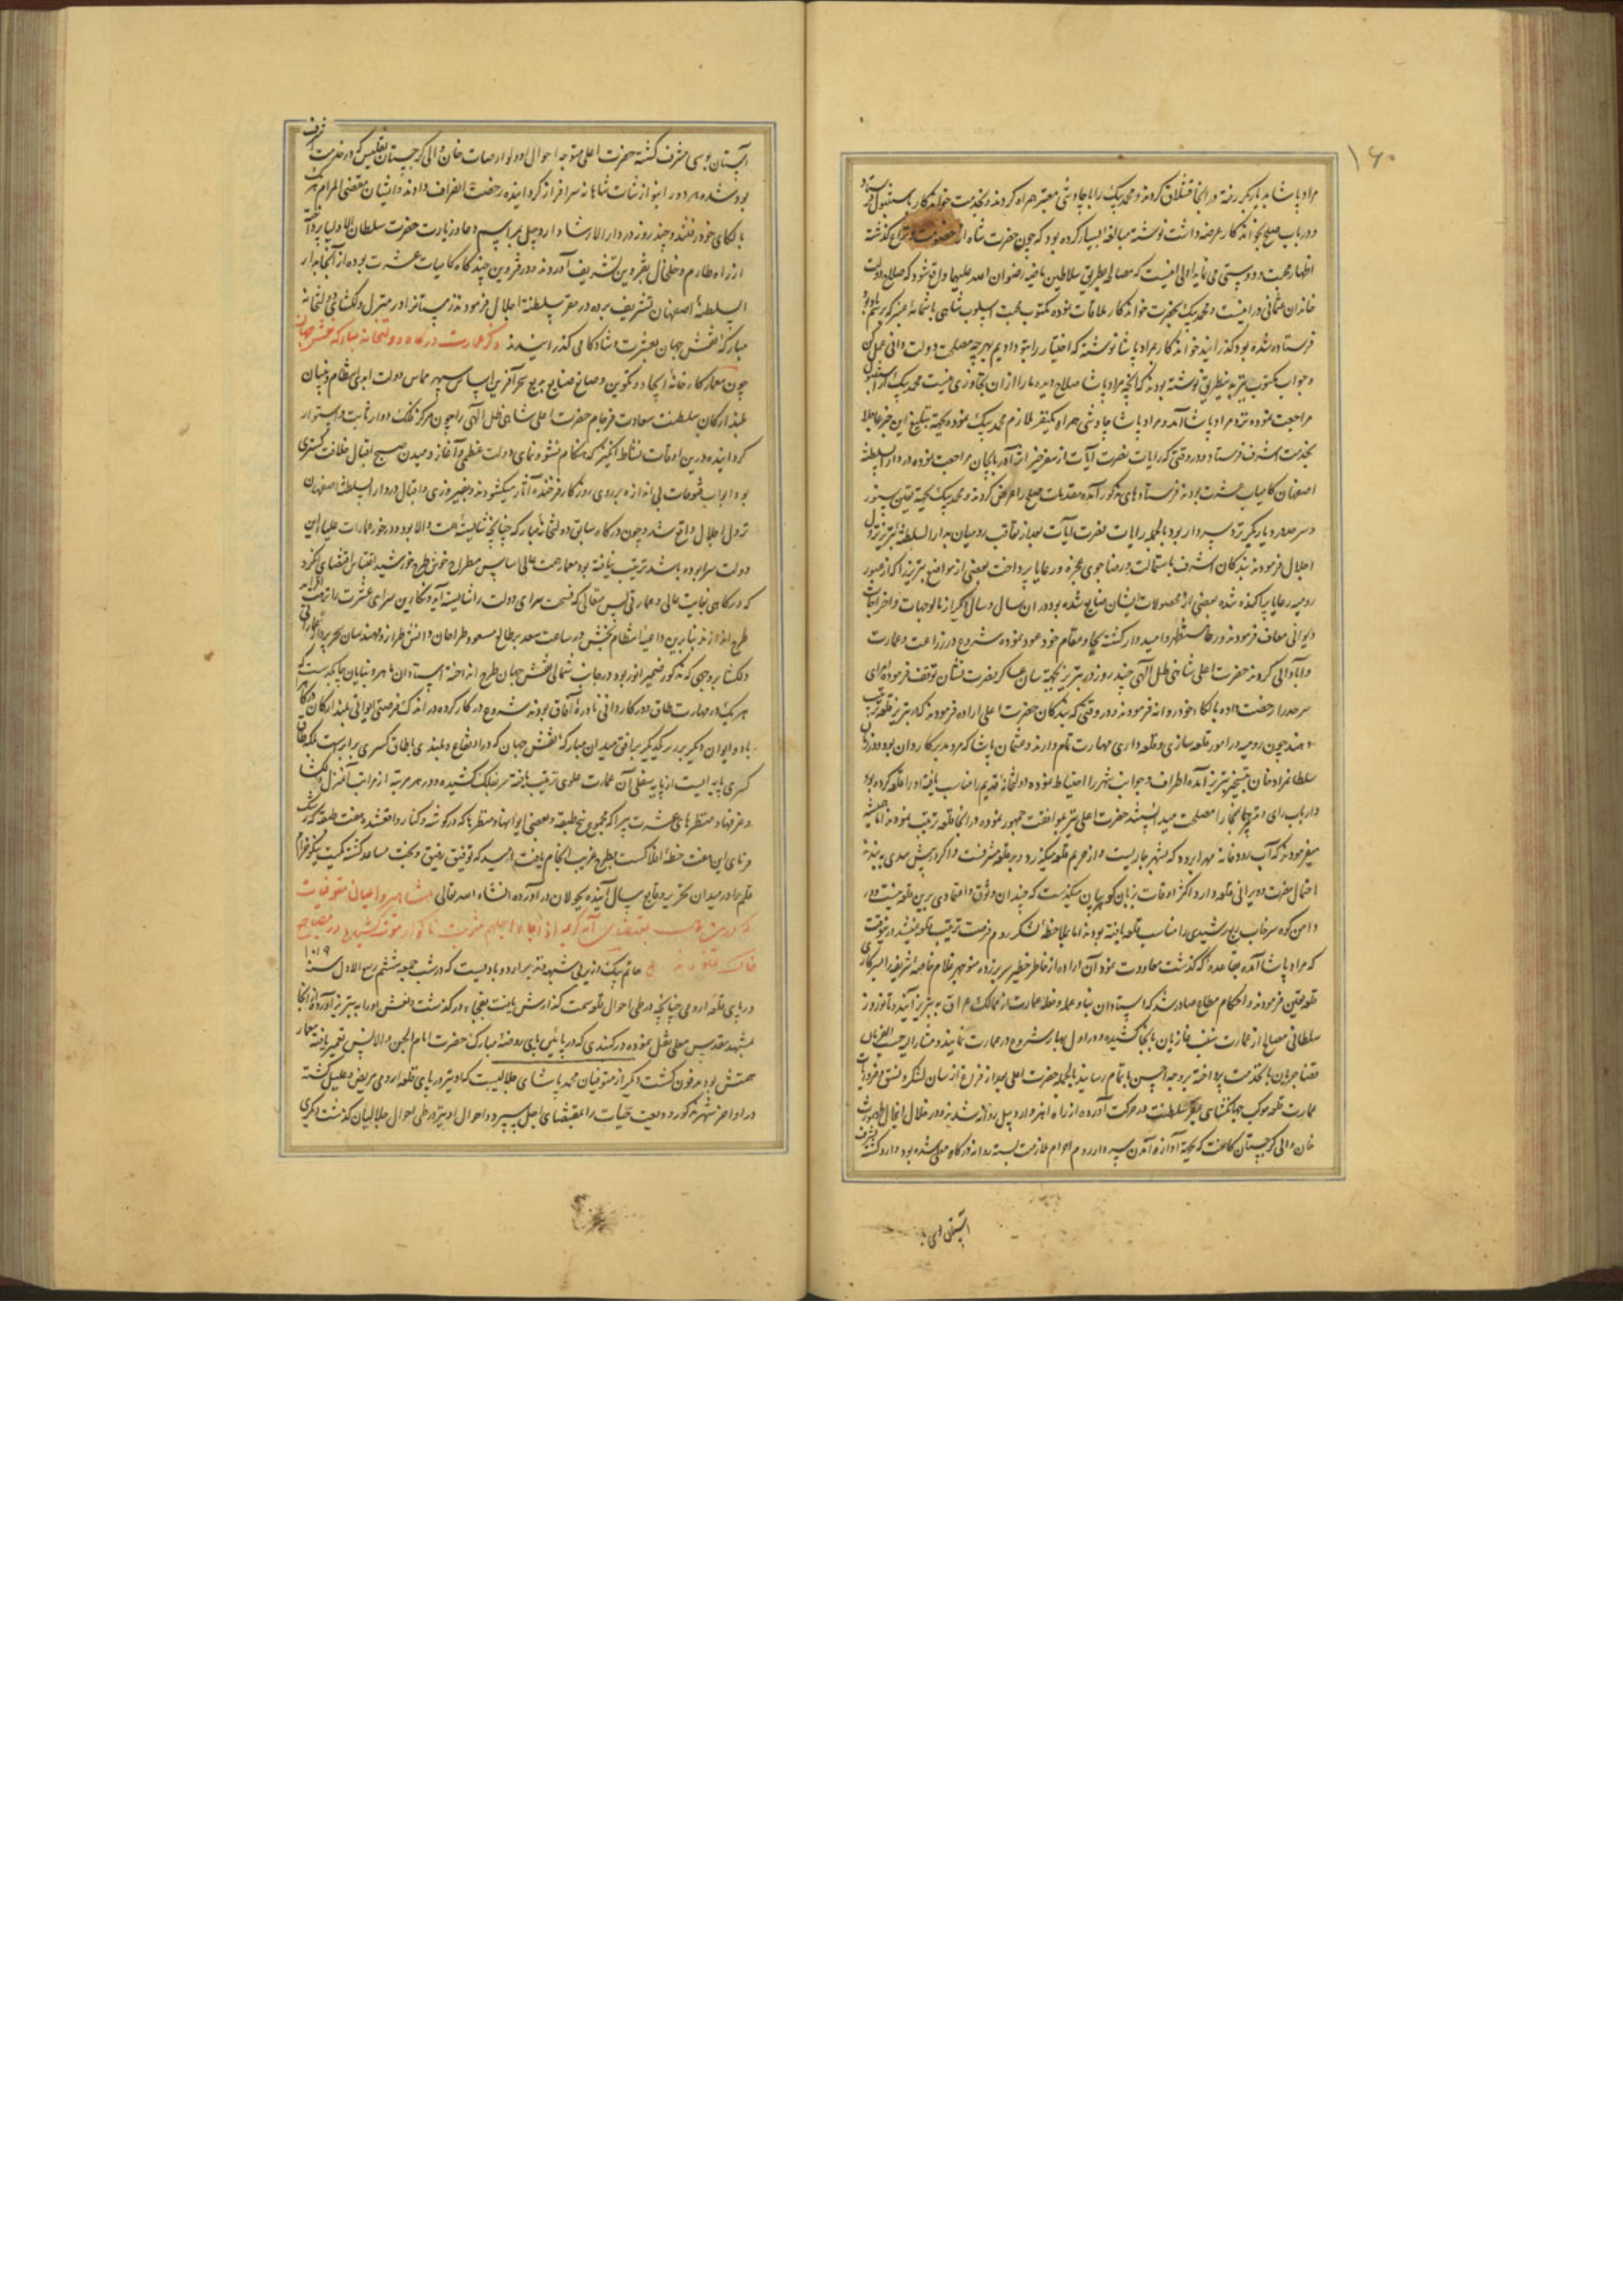 ۱۶۰
مراد پاشا بدیاربکر رفته در انجا قشلاق کردند و محمد بیک را با چاوشی معتبر همراه کرده نزد بخدمت خواندکار باستنبول فرستاد
و در باب صلح بخواندکار عرضه داشت نوشته مبالغه بسیار کرده بود که چون حضرت شاه از خصومت و نزاع گذشته
اظهار محبت و دوستی می نماید اولی انیست که مصالحه بطریق سلاطین ماضیه رضوان الله علیهما واقع شود که صلاح دولت
خاندان عثمانی در انیست و محمد بیک بحضرت خواندکار ملاقات نموده مکتوب محبت اسلوب شاهی با شمامه عنبر که برسم یادبود
فرستاده شده بود گذرانید خواندکار بمراد پاشا نوشته که اختیار را بتو دادیم بهر چه مصلحت دولت دانی عمل کن
و جواب مکتوب نیز بدین طریق نوشته بودند که آنچه مراد پاشا صلاح دیده ما را از ان تجاوزی نیست محمد بیک از استنبول
مراجعت نموده نزد مراد پاشا آمد و مراد پاشا چاوشی همراه یکنفر ملازم محمد بیک نموده بجهة تبلیغ این خبر عاجلا
بخدمت اشرف فرستاد و در وقتی که رایات نصرت آیات از سفر خیر اثر آذربایجان مراجعت نموده در دار السلطنه
اصفهان کامیاب عشرت بودند فرستادهای مذکور آمده مقدمات صلح را عرض کردند و محمد بیک بجهة تعیین سنور
و سرحد در دیاربکر نزد سردار بود بالجمله رایات نصرت آیات بعد از تعاقب رومیان بدار السلطنه تبریز نزول
اجلال فرمودند بندکان اشرف باستمالت و رضاجوی عجزه و رعایا پرداخت بعضی از مواضع تبریز را که از عبور
رومیه رعایا پراکنده شده بعضی از محصولات ایشان ضایع شده بود در ان سال و سال دیگر از مالوجهات و اخراجات
دیوانی معاف فرمودند و رعایا مستظهر و امیدوار گشته بجا و مقام خود عود نموده شروع در زراعت و عمارت
و آبادانی کردند حضرت اعلی شاهی ظل الهی چند روز در تبریز بجهة سان عساکر نصرت نشان توقف فرموده امرای
سرحد را رخصت داده بالکاء خود روانه فرمودند و در وقتی که بندکان حضرت اعلی اراده فرمودند که در تبریز قلعه ترتیب
دهند چون رومیه در امور قلعه سازی و قلعه داری مهارت تمام دارند و عثمان پاشا که مرد مدبر کاردان بود در زمان
سلطانمراد خان بتسخیر تبریز آمده اطراف و جوانب شهر را احتیاط نموده دولتخانه قدیم را مناسب یافته او را قلعه کرده بود
و ارباب رای و تدبیر انجا را مصلحت میدانستند حضرت اعلی نیز بموافقت جمهور نموده در انجا قلعه ترتیب نمودند اما همیشه
میفرمودند که آب رودخانه مهرانرود که بشهر جاریست و از حریم قلعه میگذرد و بر قلعه مشرفست و اگر در پیش سدی به بندند
احتمال مضرت و ویرانی قلعه دارد و اکثر اوقات بزبان کوهر بیان میگذشت که چندان وثوق و اعتمادی برین قلعه نیست و در
دامن کوه سرخاب ربع رشیدی را مناسب قلعه یافته بودند اما بملاحظه لشکر روم فرصت ترتیب قلعه نمیشد درینوقت
که مراد پاشا آمده بقاعده که گذشت معاودت نمود آن اراده از خاطر خطیر سر برزده منوچهر غلام خاصه شریفه را بسرکاری
قلعه تعیین فرمودند و احکام مطاع صادر شد که استادان بنا و عمله و فعله عمارت از ممالک عراق به تبریز آیند و تا نوروز
سلطانی مصالح از عمارت شنب غازیان بانجا کشیده در اول بهار شروع در عمارت نمایند و مشار الیه حسب الفرمان
قضا جریان بانخدمت پرداخته بر وجه احسن باتمام رسانید بالجمله حضرت اعلی بعد از فراغ از سان لشکر و نسق و ضروریات
عمارت قلعه موکب جهانکشای بمقر سلطنت در حرکت آورده از راه اهر و اردبیل روانه شدند و در خلال اینحال طهمورث
خان والی گرجستان کاخت که بجهة آوازه آمدن سردار روم احرام ملازمت بسته روانه درگاه معلی شده بود وارد گشته بشرف
آستان بوسی مشرف گشته حضرت اعلی متوجه احوال او و لوارصاب خان والی گرجستان تفلیس که در خدمت اشرف
بود شده هر دو را بنوازشات شاهانه سرافراز گردانیده رخصت انصراف دادند و ایشان مقتضی المرام هر یک
بالکای خود رفتند و چند روز در دار الارشاد اردبیل بمراسم دعا و زیارت حضرت سلطان الاولیا پرداخته
از راه طارم و خلخال بقزوین تشریف آوردند و در قزوین چندگاه کامیاب عشرت بوده از آنجا بدار
السلطنه اصفهان تشریف برده در مقر سلطنه اجلال فرمودند زمستانرا در منزل دلگشای دولتخانه
مبارکه نقش جهان بعشرت و شادکامی گذرانیدند ذکر عمارت درگاه دولتخانه مبارکه نقش جهان
چون معمار کارخانه ایجاد و تکوین و صانع صنایع بدیع سحر آفرین اساس سپهر مماس دولت ابدی انتظام و بنیان
بلند ارکان سلطنت سعادت فرجام حضرت اعلی شاهی ظل الهی را چون مرکز فلک دوار ثابت و استوار
گردانیده درین اوقات نشاط انگیز که هنگام نشو و نمای دولت عظمی و آغاز دمیدن صبح اقبال خلافت کبری
بود ابواب فتوحات بی اندازه بر روی روزگار فرخنده آثار میکشودند و بفیروزی و اقبال در دار السلطنه اصفهان
نزول اجلال واقع شد و چون درگاه سابق دولتخانه مبارکه چنانچه شایسته همت والا بود و در خور عمارات علیاء این
دولت سرا بوده باشد ترتیب نیافته بود معمار همت عالی اساس مطراح خوش طرح خورشید اقتباس اقتضای آن کرد
که درگاهی بغایت عالی و عمارتی بس متعالی که فسحت سرای دولت را شایسته آید و نگارین سرای عشرت را نزهت افزاید
طرح اندازند بنابرین داعیه انتظام بخش در ساعت سعد بطالع مسعود طراحان دانش طراز و مهندسان سحر پرداز عمارتی
دلگشا بر وجهی که مذکور ضمیر انور بود در جانب شمالی نقش جهان طرح انداخته استادان ماهر و بنایان چابکدست که
هر یک در مهارت طاق و در کاردانی نادره آفاق بودند شروع در کار کرده در اندک فرصتی ایوانی بلند ارکان که
با دو ایوان دیگر بر زبر یکدیگر بر افق میدان مبارکه نقش جهان که در ارتفاع و بلندی با طاق کسری برابرست بلکه طاق
کسری پایه ایست از پایه سفلی آن عمارت علوی ترتیب یافته سر بفلک کشیده و در هر مرتبه از مراتب آن منزل دلگشا
و غرفها و منظرهای عشرت سرا که مجموع پنج طبقه و بعضی ایوانها و منظرها که در گوشه و کنار واقعشده هفت طبقه که رشک
فرمای این هفت خطه افلاکست بطرح غریب انجام یافت امید که توفیق رفیق و بخت مساعد گشته کمیت نیکو خرام
قلم را در میدان تحریر وقایع سال آینده بجولان در آورده انشاء الله تعالی مشاهیر و اعیان متوفیات
که درین سال بمقتضای آیه کریمه اذا جاء اجلهم شربت ناگوار موت کشیده در مضاجع
خاک غنودند حاتم بیک از نزیلی شهید فنبر اردوبادیست که در شب جمعه ششم ربیع الاول سنه ۱۰۱۹
در پای قلعه ارومی چنانچه در طی احوال قلعه سمت گذارش یافت بفجاء در گذشت و نعش او را به تبریز آورده از انجا
بمشهد مقدس معلی نقل نموده در گنبدی که در پائین پای روضه مبارک حضرت امام الجن و الانس تعمیر یافته معمار
همتش بود مدفون گشت دیگر از متوفیان محمد پاشای جلالیست که او نیز در پای قلعه ارومی مریض و علیل گشته
در اواخر شهر مذکور ودیعت حیات را بمقتضای اجل سپرد و احوال او نیز در طی احوال جلالیان گذشت دیگری